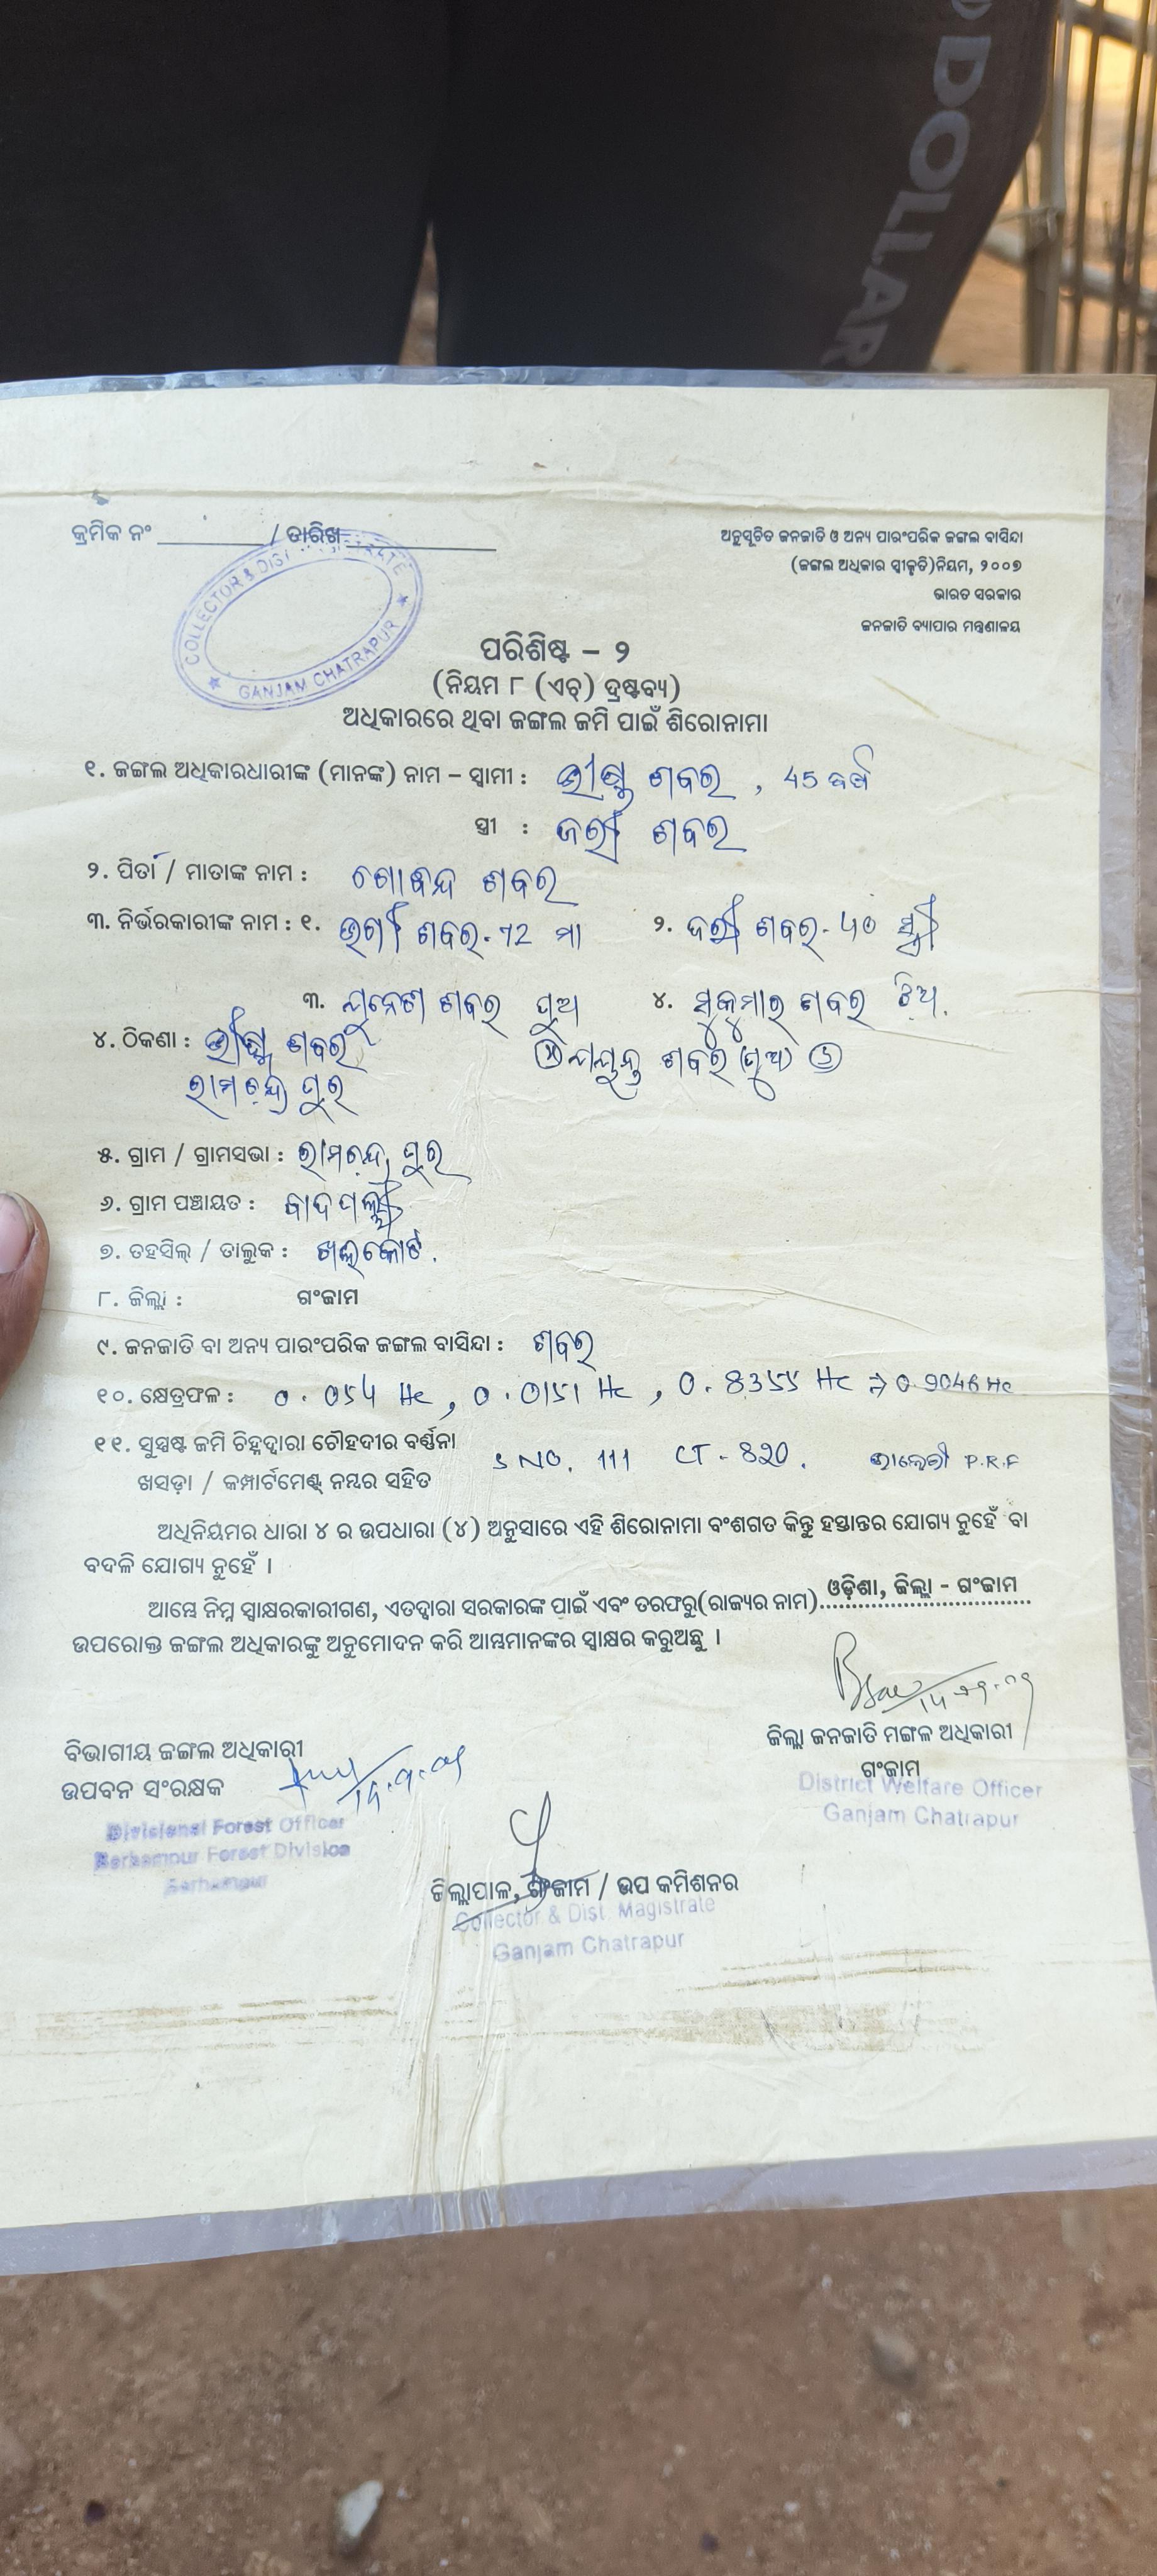 DOLLAR
କ୍ରମିକ ନଂ / ତାରିଖ
ଅନୁସୂଚିତ ଜନଜାତି ଓ ଅନ୍ୟ ପାରଂପରିକ ଜଙ୍ଗଲ ବାସିନ୍ଦା
(ଜଙ୍ଗଲ ଅଧିକାର ସ୍ୱୀକୃତି)ନିୟମ, ୨୦୦୭
ଭାରତ ସରକାର
ଜନଜାତି ବ୍ୟାପାର ମନ୍ତ୍ରଣାଳୟ
COLLECTOR & DIST
GANJAM CHATRAPUR
ପରିଶିଷ୍ଟ – ୨
(ନିୟମ ୮ (ଏଚ୍) ଦ୍ରଷ୍ଟବ୍ୟ)
ଅଧିକାରରେ ଥିବା ଜଙ୍ଗଲ ଜମି ପାଇଁ ଶିରୋନାମା
୧. ଜଙ୍ଗଲ ଅଧିକାରଧାରୀଙ୍କ (ମାନଙ୍କ) ନାମ – ସ୍ୱାମୀ : ଭୀଷ୍ମ ଶବର , 45 ବର୍ଷ
ସ୍ତ୍ରୀ : ଶବର
୨. ପିତା / ମାତାଙ୍କ ନାମ : ଶବର
୩. ନିର୍ଭରକାରୀଙ୍କ ନାମ : ୧. ଶବର - 72 ମା ୨. ଶବର - ୪୦ ସ୍ତ୍ରୀ
୩. ଶବର ପୁଅ ୪. ସୁକୁମାର ଶବର ଝିଅ.
୪. ଠିକଣା : ଭୀଷ୍ମ ଶବର
ଶବର (ପୁଅ)
ରାମଚନ୍ଦ୍ର ପୁର
୫. ଗ୍ରାମ / ଗ୍ରାମସଭା : ରାମଚନ୍ଦ୍ର ପୁର
୬. ଗ୍ରାମ ପଞ୍ଚାୟତ :
୭. ତହସିଲ୍ / ତାଲୁକ : ଖଲ୍ଲିକୋଟ.
୮. ଜିଲ୍ଲା : ଗଂଜାମ
୯. ଜନଜାତି ବା ଅନ୍ୟ ପାରଂପରିକ ଜଙ୍ଗଲ ବାସିନ୍ଦା : ଶବର
୧୦. କ୍ଷେତ୍ରଫଳ : 0.054 Hc , 0.0151 Hc , 0.8355 Hc ⇒ 0.9046 Hc
୧୧. ସୁସ୍ପଷ୍ଟ ଜମି ଚିହ୍ନଦ୍ୱାରା ଚୌହଦୀର ବର୍ଣ୍ଣନା
ଖସଡ଼ା / କମ୍ପାର୍ଟମେଣ୍ଟ୍ ନମ୍ବର ସହିତ S NO. 111 CT - 820. ଭାଲେରୀ P.R.F
ଅଧିନିୟମର ଧାରା ୪ ର ଉପଧାରା (୪) ଅନୁସାରେ ଏହି ଶିରୋନାମା ବଂଶଗତ କିନ୍ତୁ ହସ୍ତାନ୍ତର ଯୋଗ୍ୟ ନୁହେଁ ବା
ବଦଳି ଯୋଗ୍ୟ ନୁହେଁ ।
ଆମ୍ଭେ ନିମ୍ନ ସ୍ୱାକ୍ଷରକାରୀଗଣ, ଏତଦ୍ୱାରା ସରକାରଙ୍କ ପାଇଁ ଏବଂ ତରଫରୁ(ରାଜ୍ୟର ନାମ) ଓଡ଼ିଶା, ଜିଲ୍ଲା - ଗଂଜାମ
ଉପରୋକ୍ତ ଜଙ୍ଗଲ ଅଧିକାରଙ୍କୁ ଅନୁମୋଦନ କରି ଆମ୍ଭମାନଙ୍କର ସ୍ୱାକ୍ଷର କରୁଅଛୁ ।
ଜିଲ୍ଲା ଜନଜାତି ମଙ୍ଗଳ ଅଧିକାରୀ
ଗଂଜାମ
District Welfare Officer
Ganjam Chatrapur
ବିଭାଗୀୟ ଜଙ୍ଗଲ ଅଧିକାରୀ
ଉପବନ ସଂରକ୍ଷକ
Divisional Forest Officer
Berhampur Forest Division
Berhampur
ଜିଲ୍ଲାପାଳ, ଗଂଜାମ / ଉପ କମିଶନର
Collector & Dist. Magistrate
Ganjam Chatrapur